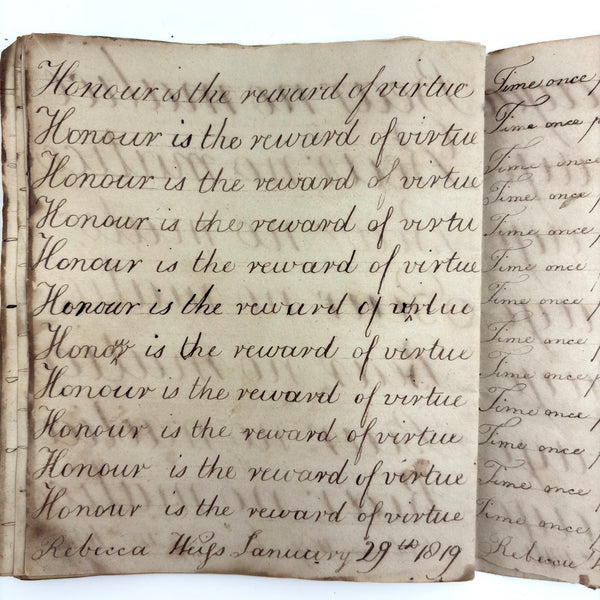 Honour is the reward of virtue
Honour is the reward of virtue
Honour is the reward of virtue
Honour is the reward of virtu
Honour is the reward of virtue
Honour is the reward of virtue
Honour is the reward of virtue
Honour is the reward of virtue
Honour is the reward of virtue
Honour is the reward of virtue
Honour is the reward of virtue
Rebecca January 29th 1819
Time once p
Time once p
Time once
Time once p
Time once p
Time once
Time once p
Time once
Time once p
Time once p
Time once p
Time once
Time once p
Rebecca